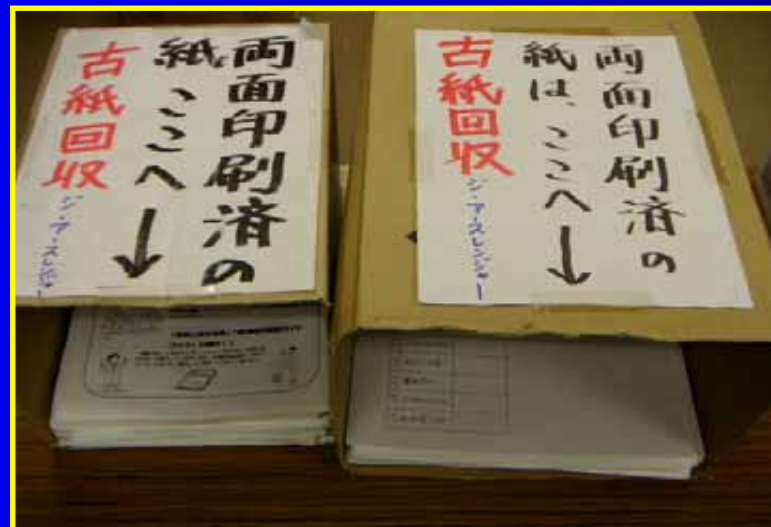 両面印刷済の
紙、ここへ↓
古紙回収
ジン・アースレンジャー
両面印刷済の
紙は、ここへ↓
古紙回収
ジン・アースレンジャー